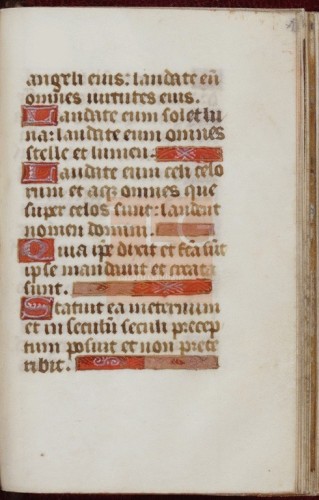 angeli eius: laudate eũ
omnes uirtutes eius.
Laudate eum sol et lu
na: laudate eum omnes
stelle et lumen.
Laudate eum celi celo
rum et aq̃ omnes que
super celos sunt: laudent
nomen domini.
Quia ip̃e dixit et fc̃a sũt
ipse mandauit et creata
sunt.
Statuit ea in eternum
et in seculũ seculi precep
tum posuit et non prete
ribit.